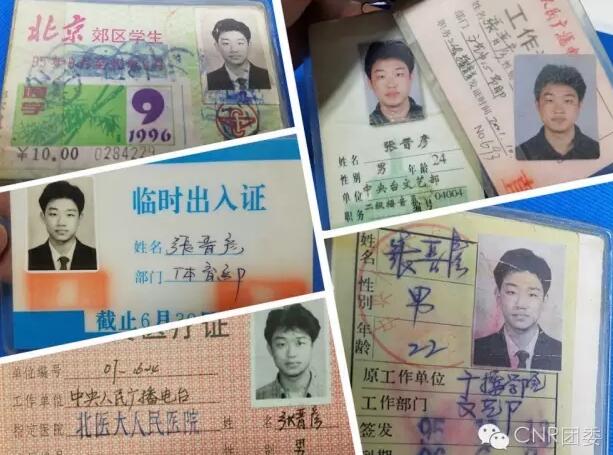 北京 郊区学生
通学
9
1996
¥10.00 0284229
工作
部门
职务
No 693
张晋彦
姓名
性别 男 年龄 24
单位 中央台文艺部
职务 二级播音员 04004
临时出入证
姓名 张晋彦
部门 体育部
截止6月30日
姓名 张晋彦
性别 男
年龄 22
原工作单位 广播学院
工作部门 文艺部
签发 95
医疗证
单位编号 01-16-4
工作单位 中央人民广播电台
指定医院 北医大人民医院
姓名 张晋彦
男
CNR团委